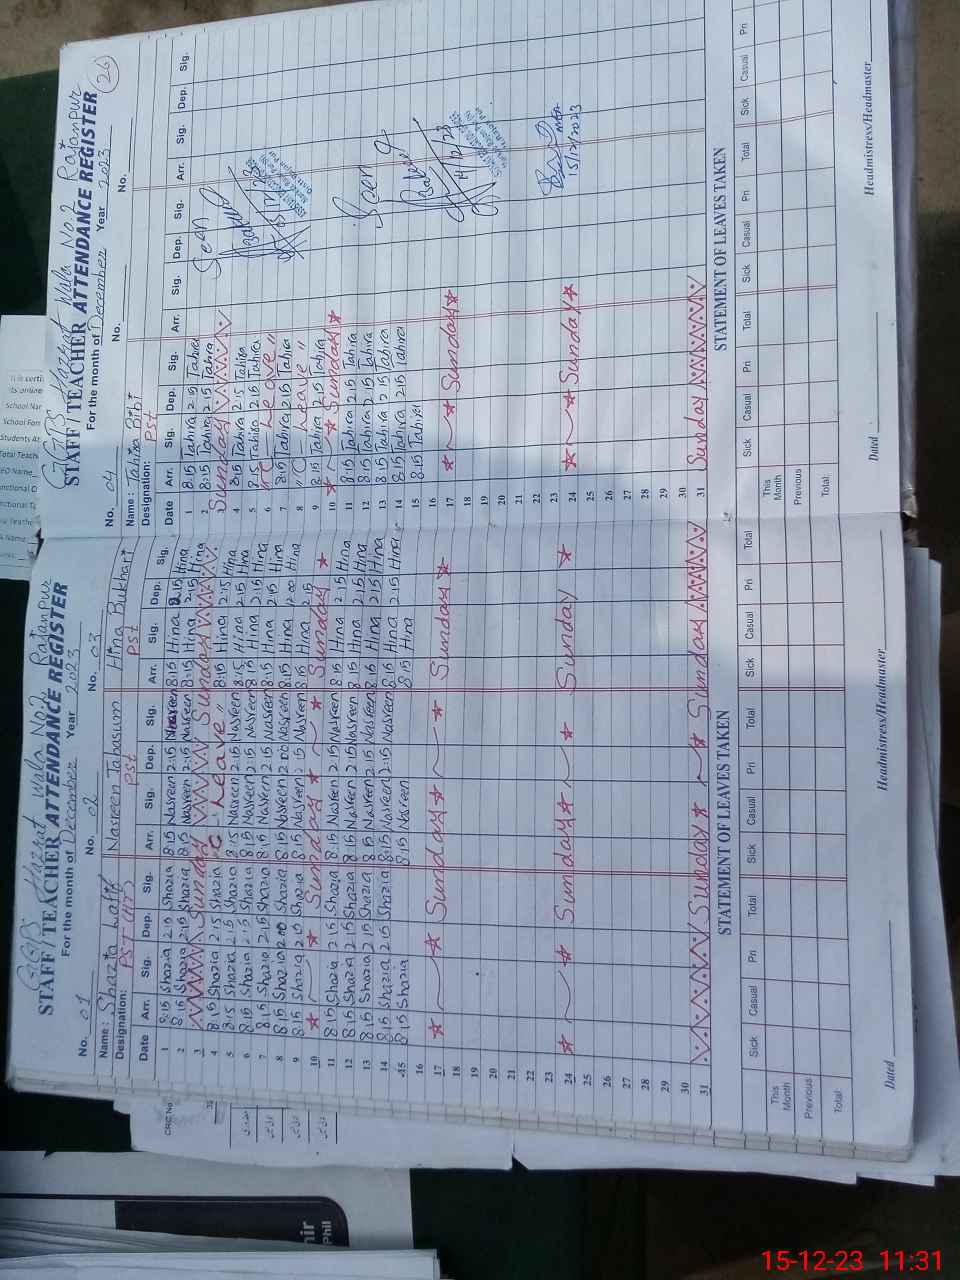 GGPS Hazrat Wala No.2 Rajanpur
STAFF/TEACHER ATTENDANCE REGISTER
For the month of December Year 2023
No. 01 No. 02 No. 03
Name: Shazia Latif Nasreen Tabasum Hina Bukhari
Designation: PST PST PST
Date Arr. Sig. Dep. Sig. Arr. Sig. Dep. Sig. Arr. Sig. Dep. Sig.
1 8:15 Shazia 2:15 Shazia 8:15 Nasreen 2:15 Nasreen 8:15 Hina 2:15 Hina
2 8:15 Shazia 2:15 Shazia 8:15 Nasreen 2:15 Nasreen 8:15 Hina 2:15 Hina
3 Sunday Sunday
4 8:15 Shazia 2:15 Shazia C Leave" 8:15 Hina 2:15 Hina
5 8:15 Shazia 2:15 Shazia 8:15 Nasreen 2:15 Nasreen 8:15 Hina 2:15 Hina
6 8:15 Shazia 2:15 Shazia 8:15 Nasreen 2:15 Nasreen 8:15 Hina 2:15 Hina
7 8:15 Shazia 2:15 Shazia 8:15 Nasreen 2:15 Nasreen 8:15 Hina 2:15 Hina
8 8:15 Shazia 12:00 Shazia 8:15 Nasreen Nasreen 8:15 Hina 12:00 Hina
9 8:15 Shazia 2:15 Shazia 8:15 Nasreen 2:15 Nasreen 8:15 Hina 2:15
10 Sunday Sunday
11 8:15 Shazia 2:15 Shazia 8:15 Nasreen 2:15 Nasreen 8:15 Hina 2:15 Hina
12 8:15 Shazia 2:15 Shazia 8:15 Nasreen 2:15 Nasreen 8:15 Hina 2:15 Hina
13 8:15 Shazia 2:15 Shazia 8:15 Nasreen 2:15 Nasreen 8:15 Hina 2:15 Hina
14 8:15 Shazia 2:15 Shazia 8:15 Nasreen 2:15 Nasreen 8:15 Hina 2:15 Hina
15 8:15 Shazia 8:15 Nasreen 8:15 Hina
16
17 Sunday Sunday
18
19
20
21
22
23
24 Sunday Sunday
25
26
27
28
29
30
31 Sunday Sunday
STATEMENT OF LEAVES TAKEN
Sick Casual Pri Total Sick Casual Pri Total Sick Casual Pri Total
This Month
Previous
Total
Dated Headmistress/Headmaster
GGPS Hazrat Wala No.2 Rajanpur
26
STAFF/TEACHER ATTENDANCE REGISTER
For the month of December Year 2023
No. 04 No. No.
Name: Tahira Bibi
Designation: PST
Date Arr. Sig. Dep. Sig. Arr. Sig. Dep. Sig. Arr. Sig. Dep. Sig.
1 8:15 Tahira 2:15 Tahira
2 8:15 Tahira 2:15 Tahira
3 Sunday
4 8:15 Tahira 2:15 Tahira
5 8:15 Tahira 2:15 Tahira
6 "C Leave"
7 8:15 Tahira 2:15 Tahira
8 "C Leave"
9 8:15 Tahira 2:15 Tahira
10 Sunday
11 8:15 Tahira 2:15 Tahira
12 8:15 Tahira 2:15 Tahira
13 8:15 Tahira 2:15 Tahira
14 8:15 Tahira 2:15 Tahira
15 8:15 Tahira
16
17 Sunday
18
19
20
21
22
23
24 Sunday
25
26
27
28
29
30
31 Sunday
Seen
Seen
15/12/2023
STATEMENT OF LEAVES TAKEN
Sick Casual Pri Total Sick Casual Pri Total Sick Casual Pri
This Month
Previous
Total
Dated Headmistress/Headmaster
CRC No
School Nar
Students At
Phil
15-12-23 11:31